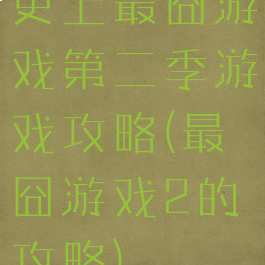 史上最囧游
戏第二季游
戏攻略(最
囧游戏2的
攻略)